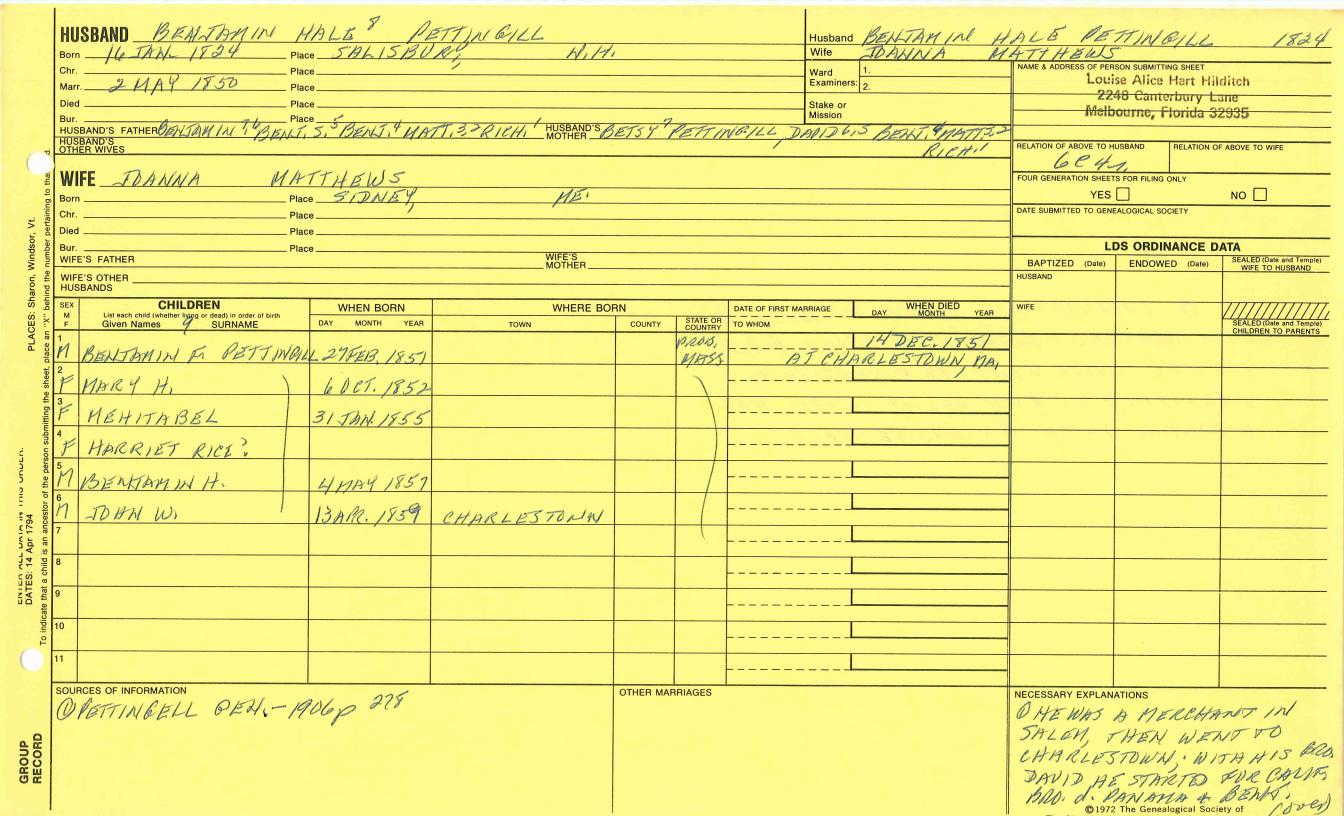 HUSBAND BENJAMIN HALE 8 PETTINGILL
Born 16 JAN. 1824 Place SALISBURY, N.H.
Chr. Place
Marr. 2 MAY 1850 Place
Died Place
Bur. Place
HUSBAND'S FATHER BENJAMIN 7,6 BENJ. S. 5 BENJ. 4 MATT. 3,2 RICH. 1 HUSBAND'S MOTHER BETSY 7 PETTINGILL, DAVID 6,5 BENJ. 4 MATT. 3,2
RICH. 1
HUSBAND'S OTHER WIVES
Husband BENJAMIN HALE PETTINGILL 1824
Wife JOANNA MATTHEWS
Ward Examiners: 1.
2.
Stake or Mission
NAME & ADDRESS OF PERSON SUBMITTING SHEET
Louise Alice Hart Hilditch
2248 Canterbury Lane
Melbourne, Florida 32935
RELATION OF ABOVE TO HUSBAND RELATION OF ABOVE TO WIFE
6C4r.
FOUR GENERATION SHEETS FOR FILING ONLY
YES NO
DATE SUBMITTED TO GENEALOGICAL SOCIETY
WIFE JOANNA MATTHEWS
Born Place SIDNEY, ME.
Chr. Place
Died Place
Bur. Place
WIFE'S FATHER WIFE'S MOTHER
WIFE'S OTHER HUSBANDS
LDS ORDINANCE DATA
BAPTIZED (Date) ENDOWED (Date) SEALED (Date and Temple) WIFE TO HUSBAND
HUSBAND
WIFE
SEALED (Date and Temple) CHILDREN TO PARENTS
SEX M F
CHILDREN
List each child (whether living or dead) in order of birth
Given Names 9 SURNAME
WHEN BORN
DAY MONTH YEAR
WHERE BORN
TOWN COUNTY STATE OR COUNTRY
DATE OF FIRST MARRIAGE
TO WHOM
WHEN DIED
DAY MONTH YEAR
1 M BENJAMIN F. PETTINGILL 27 FEB. 1851 PROB. MASS 14 DEC. 1851
AT CHARLESTOWN, MA.
2 F MARY H. 6 OCT. 1852
3 F MEHITABEL 31 JAN. 1855
4 F HARRIET RICE?
5 M BENJAMIN H. 4 MAY 1857
6 M JOHN W. 13 APR. 1859 CHARLESTOWN
7
8
9
10
11
SOURCES OF INFORMATION
① PETTINGELL GEN. - 1906 p 278
OTHER MARRIAGES
NECESSARY EXPLANATIONS
① HE WAS A MERCHANT IN
SALEM, THEN WENT TO
CHARLESTOWN, WITH HIS BRO.
DAVID HE STARTED FOR CALIF,
BRO. d. PANAMA & BENJ.
(over)
©1972 The Genealogical Society of
PLACES: Sharon, Windsor, Vt.
ENTER ALL DATA IN THIS ORDER:
DATES: 14 Apr 1794
To indicate that a child is an ancestor of the person submitting the sheet, place an "X" behind the number pertaining to that
GROUP RECORD